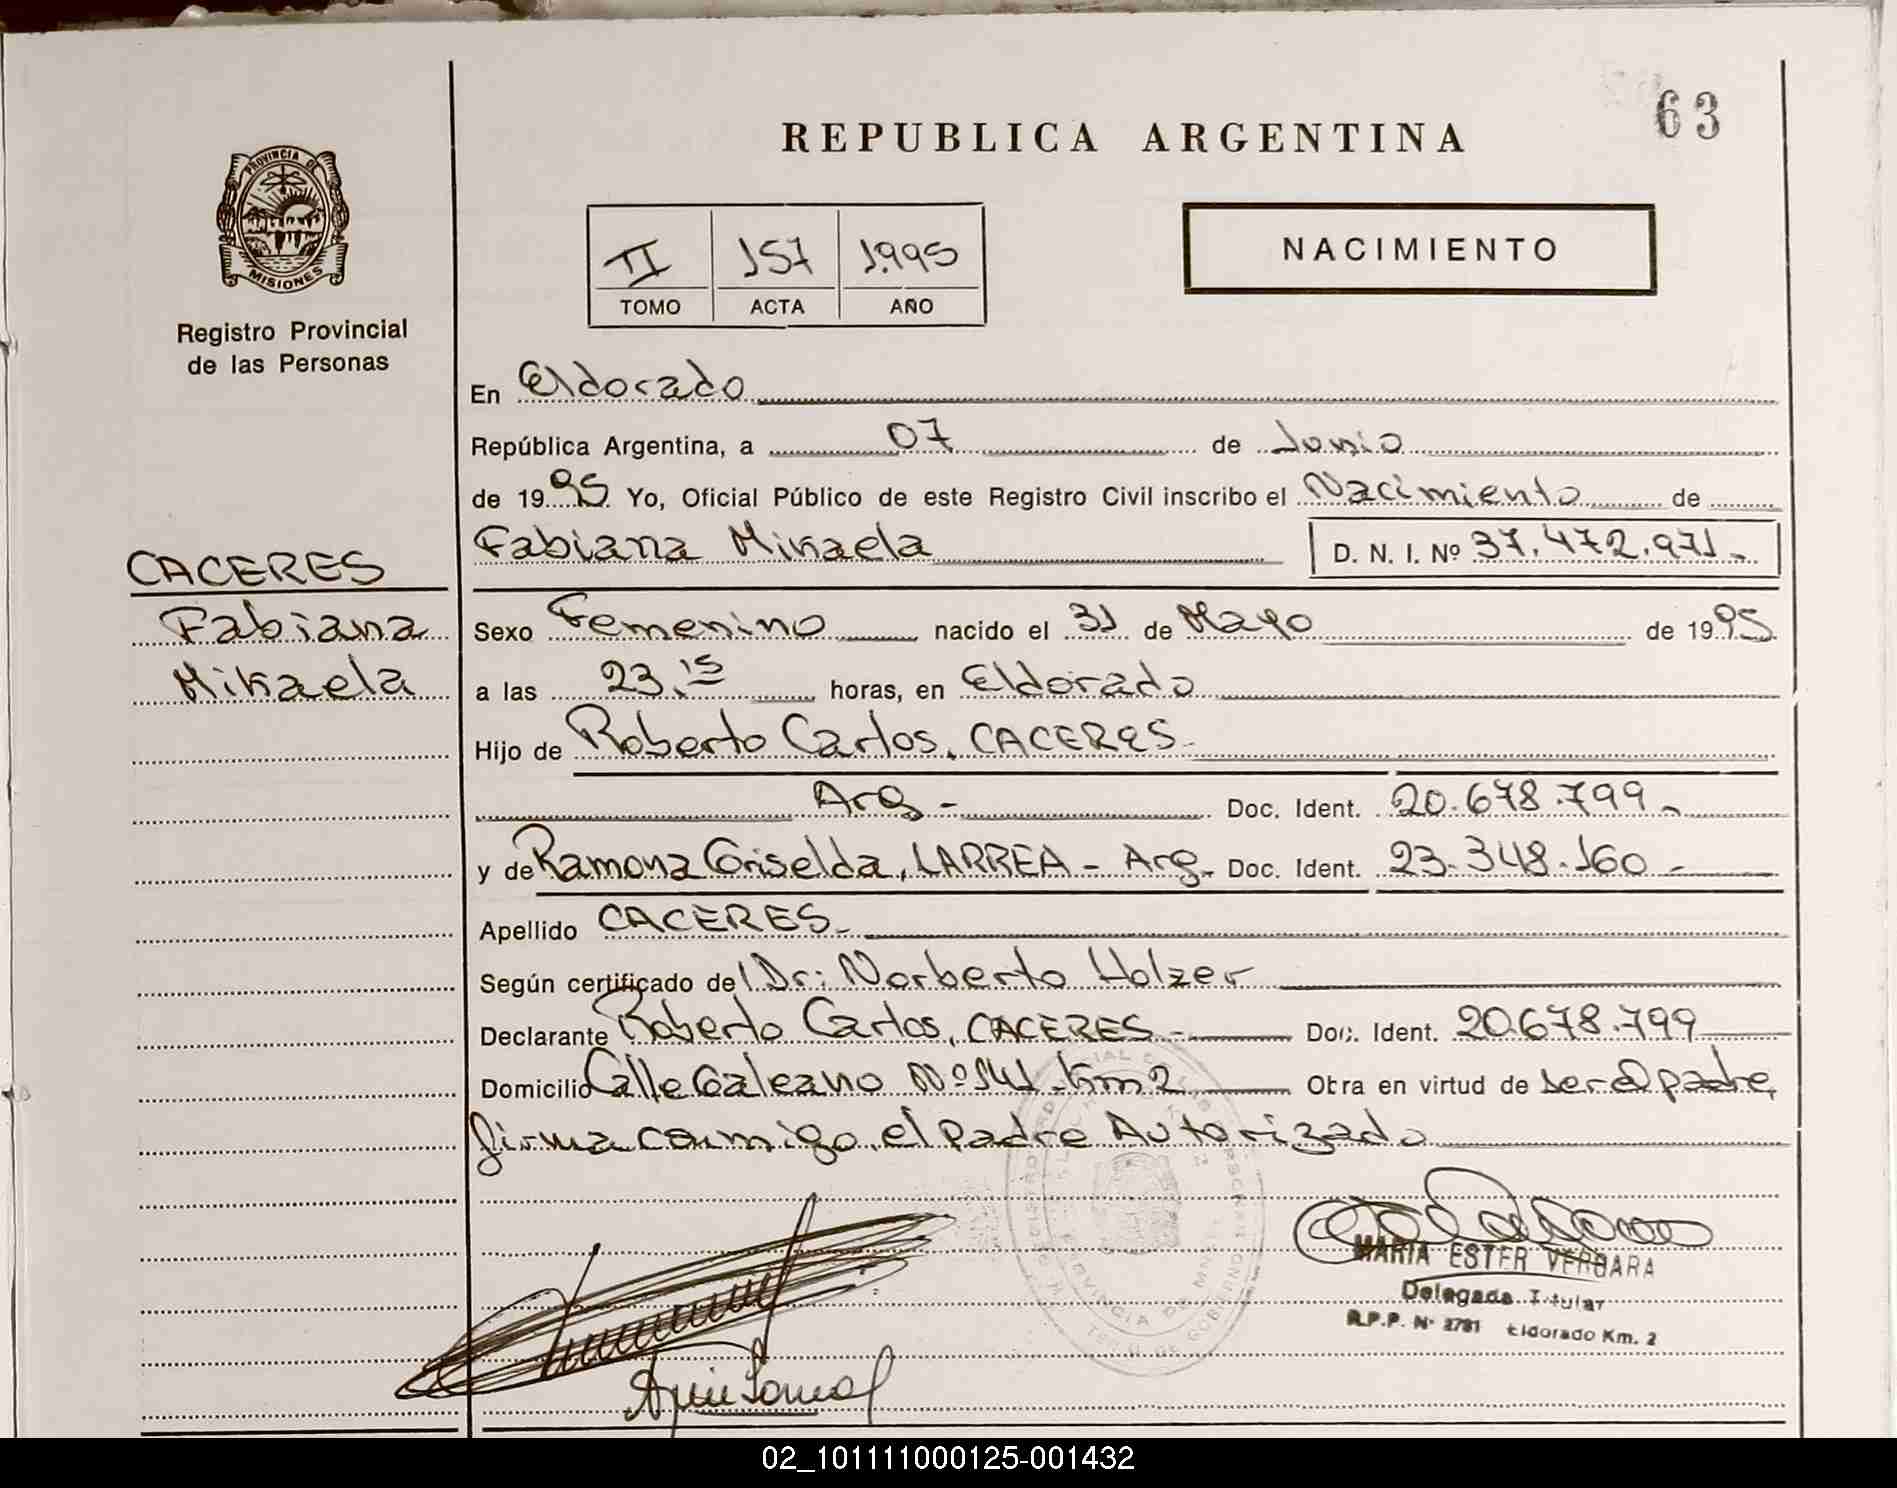 63
REPUBLICA ARGENTINA
PROVINCIA DE
MISIONES
Registro Provincial
de las Personas
II 157 1.995
TOMO ACTA AÑO
NACIMIENTO
En Eldorado
República Argentina, a 07 de Junio
de 1995 Yo, Oficial Público de este Registro Civil inscribo el Nacimiento de
Fabiana Mikaela D. N. I. Nº 37.472.971.-
CACERES
Fabiana
Mikaela
Sexo Femenino nacido el 31 de Mayo de 1995
a las 23.15 horas, en Eldorado
Hijo de Roberto Carlos, CACERES-
Arg - Doc. Ident. 20.678.799.-
y de Ramona Griselda, LARREA - Arg. Doc. Ident. 23.348.160.-
Apellido CACERES.-
Según certificado del Dr: Norberto Holzer
Declarante Roberto Carlos, CACERES.- Doc. Ident. 20.678.799
Domicilio Calle Galeano Nº 141 - Km 2 Obra en virtud de ser el padre,
firma conmigo el padre Autorizado
MARIA ESTER VERGARA
Delegada Titular
R.P.P. Nº 2781 Eldorado Km. 2
02_101111000125-001432